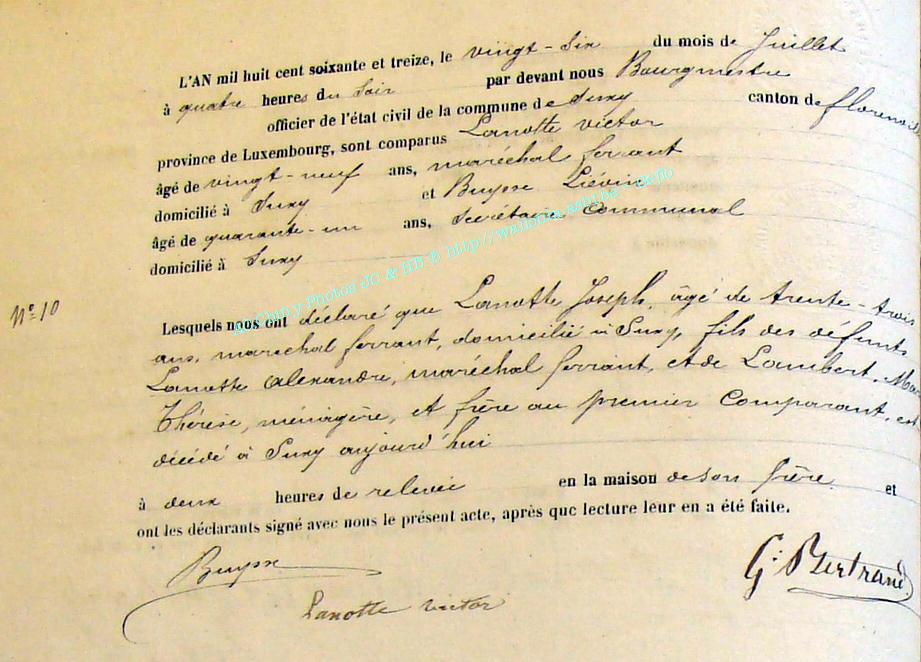 L'AN mil huit cent soixante et treize, le vingt-six du mois de Juillet
à quatre heures du soir par devant nous Bourgmestre
officier de l'état civil de la commune de Suxy canton de
province de Luxembourg, sont comparus Lanotte Victor
âgé de vingt-neuf ans, maréchal ferrant
domicilié à Suxy et Buysse Liévin
âgé de quarante-un ans, secrétaire communal
domicilié à Suxy
N° 10
Lesquels nous ont déclaré que Lanotte Joseph, âgé de trente-trois
ans, maréchal ferrant, domicilié à Suxy, fils des défunts
Lanotte Alexandre, maréchal ferrant, et de Lambert, Mar
Thérèse, ménagère, et frère au premier comparant, est
décédé à Suxy aujourd'hui
à deux heures de relevée en la maison de son frère et
ont les déclarants signé avec nous le présent acte, après que lecture leur en a été faite.
Buysse
G. Bertrand
Lanotte Victor
Photos JC & HB © http://